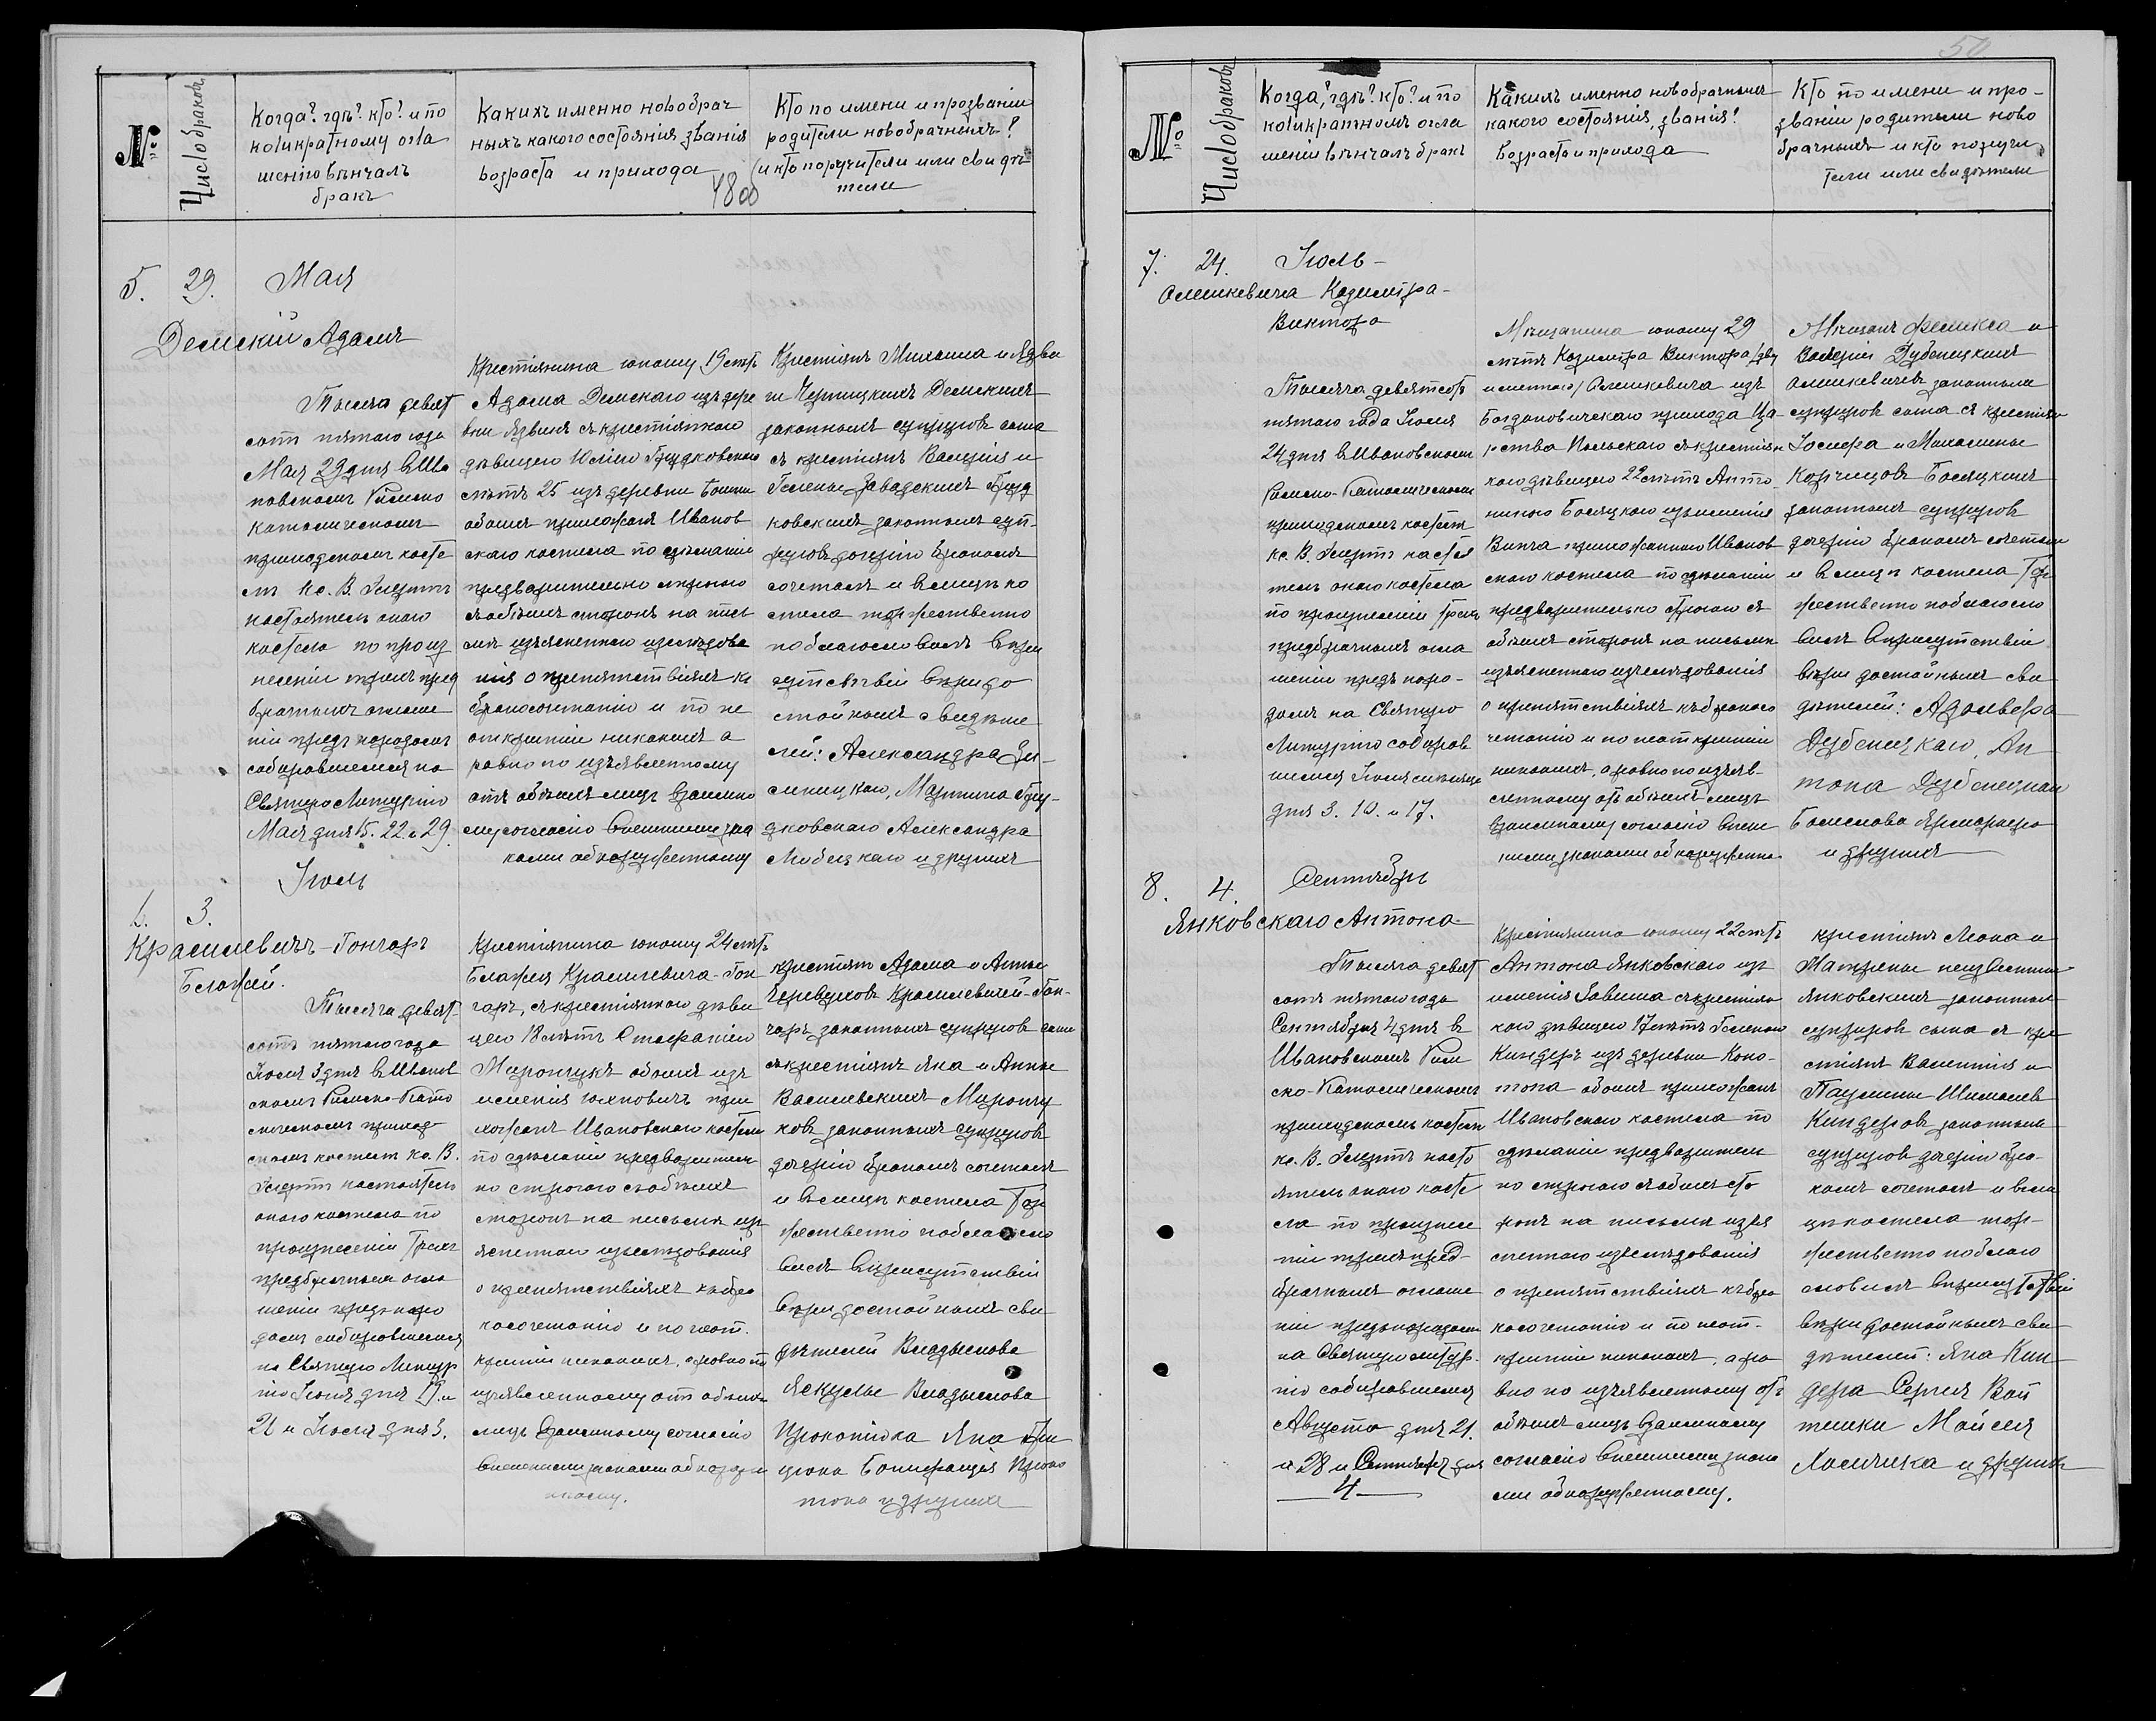 №
Число браковъ
Когда? гдѣ? кто? и по
коликратному огла
шенію вѣнчалъ
бракъ
Какихъ именно новобрач
ныхъ какого состоянія, званія
возраста и прихода
Кто по имени и прозванію
родители новобрачныхъ?
и кто поручители или свидѣ
тели
5.
29.
Мая
Демскій Адамъ
Тысяча девят
сотъ пятаго года
Мая 29 дня въ Ива
новскомъ Римско
католическомъ
приходскомъ косте
лѣ кс. В.
настоятель онаго
костела по произ
несеніи трехъ пред
брачныхъ оглаше
ній предъ народомъ
собиравшемся на
Святую Литургію
Мая дня 15. 22 и 29.
Крестьянина юношу 19 лѣтъ
Адама Демскаго изъ дере
вни съ крестьянкою
дѣвицею Юліею Грудковскою
лѣтъ 25 изъ деревни
обоихъ прихожанъ Иванов
скаго костела по сдѣланіи
предварительно строгаго
съ обѣихъ сторонъ на пись
мѣ изъясненнаго изслѣдова
нія о препятствіяхъ къ
бракосочетанію и по не
открытіи никакихъ а
равно по изъявленному
отъ обѣихъ лицъ взаимно
му согласію внѣшними зна
ками обнаруженному
Крестьянъ Михаила и Ядви
ги Демскихъ
законныхъ супруговъ сына
съ крестьянъ Валерія и
Гелены Завадскихъ Груд
ковскихъ законныхъ суп-
руговъ дочерію бракомъ
сочеталъ и въ лицѣ ко
стела торжественно
поблагословилъ въ при
сутствіи вѣридо
стойныхъ свидѣте
лей: Александра
Мартина Гру-
дковскаго Александра
Любецкаго и другихъ
Іюль
6.
3.
Красилевичъ-Гончаръ
Блажей.
Тысяча девят-
сотъ пятаго года
Іюля 3 дня въ Иванов
скомъ Римско-Като
лическомъ приход
скомъ костелѣ кс. В.
настоятель
онаго костела по
произнесеніи трехъ
предбрачныхъ огла
шеній предъ наро
домъ собиравшемся
на Святую Литур
гію Іюня дня 19. и
26 и Іюля дня 3.
Крестьянина юношу 24 лѣтъ
Блажея Красилевича-Гон
чаръ, съ крестьянкою дѣви
цею 18 лѣтъ Стефаніею
Мирончукъ обоихъ изъ
имѣнія Юхновичъ при
хожанъ Ивановскаго костела
по сдѣланіи предваритель
но строгаго съ обѣихъ
сторонъ на письмѣ изъ
ясненнаго изслѣдованія
о препятствіяхъ къ бра
косочетанію и по неот.
крытіи никакихъ, а равно по
изъявленному отъ обѣихъ
лицъ взаимному согласію
внѣшними знаками обнаруже
нному.
крестьянъ Адама и Анны
Красилевичей-Гон-
чаръ законныхъ супруговъ сына
съ крестьянъ Яна и Анны
Василевскихъ Мирончу
ковъ законныхъ супруговъ
дочерію бракомъ сочеталъ
и въ лицѣ костела тор
жественно поблагосло
вилъ въ присутствіи
вѣридостойныхъ сви
дѣтелей Владыслава
Владыслава
Яна
Бонифація
и другихъ
50
№
Число браковъ
Когда? гдѣ? кто? и по
коликратномъ огла
шеніи вѣнчалъ бракъ
Какихъ именно новобрачныхъ
какого состоянія, званія?
Возраста и прихода
Кто по имени и про-
званію родители ново
брачныхъ и кто поручи
тели или свидѣтели
7.
24.
Іюль-
Олешкевича Казимира-
Виктора
Тысяча девятсотъ
пятаго года Іюля
24 дня въ Ивановскомъ
Римско-Католическомъ
приходскомъ костелѣ
кс. В. настоя
тель онаго костела
по произнесеніи трехъ
предбрачныхъ огла
шеній предъ наро-
домъ на Святую
Литургію собирав
шемся Іюля мѣсяца
дня 3. 10. и 17.
Мѣщанина юношу 29
лѣтъ Казимира Виктора /дву
именнаго/ Олешкевича изъ
Богдановичскаго прихода Ца-
рства Польскаго съ крестьян
кою дѣвицею 22 лѣтъ Анто
ниною изъ имѣнія
прихожанкою Иванов
скаго костела по сдѣланіи
предварительно строгаго съ
обѣихъ сторонъ на письмѣ
изъясненнаго изслѣдованія
о препятствіяхъ къ бракосо
четанію и по неоткрытіи
никакихъ, а равно по изъяв-
ленному отъ обѣихъ лицъ
взаимному согласію внѣш
ними знаками обнаруженно-
Мѣщанъ Феликса и
Валеріи Дубенецкихъ
Олешкевичевъ законныхъ
супруговъ сына съ крестьян
Іосифа и
законныхъ супруговъ
дочерію бракомъ сочеталъ
и въ лицѣ костела тор
жественно поблагосло
вилъ въ присутствіи
вѣри достойныхъ сви
дѣтелей:
Дубенецкаго, Ан
тона
Болеслава
и другихъ
8.
4.
Сентябрь
Янковскаго Антона-
Тысяча девят
сотъ пятаго года
Сентября 4 дня въ
Ивановскомъ Рим
ско-Католическомъ
приходскомъ костелѣ
кс. В. насто
ятель онаго косте
ла по произнесе
ніи трехъ пред-
брачныхъ оглаше
ній предъ народомъ
на Святую литур-
гію собиравшемся
Августа дня 21.
и 28 и Сентября дня
4
Крестьянина юношу 22 лѣтъ
Антона Янковскаго изъ
имѣнія съ крестьян
кою дѣвицею 17 лѣтъ Геленою
Киндеръ изъ деревни Коно-
топа обоихъ прихожанъ
Ивановскаго костела по
сдѣланіи предваритель
но строгаго съ обѣихъ сто
ронъ на письмѣ изъя
сненнаго изслѣдованія
о препятствіяхъ къ бра
косочетанію и по неот-
крытіи никакихъ, а ра
вно по изъявленному отъ
обѣихъ лицъ взаимному
согласію внѣшними знака
ми обнаруженному.
крестьянъ Леона и
Матрены
Янковскихъ законныхъ
супруговъ сына съ кре
стьянъ Валентія и
Паулины
Киндеровъ законныхъ
супруговъ дочерію бра-
комъ сочеталъ и въ ли
цѣ костела тор-
жественно поблаго
словилъ въ присутствіи
вѣри достойныхъ сви
дѣтелей: Яна Кин
дера Сергея Вой
тешки Мойсея
и другихъ